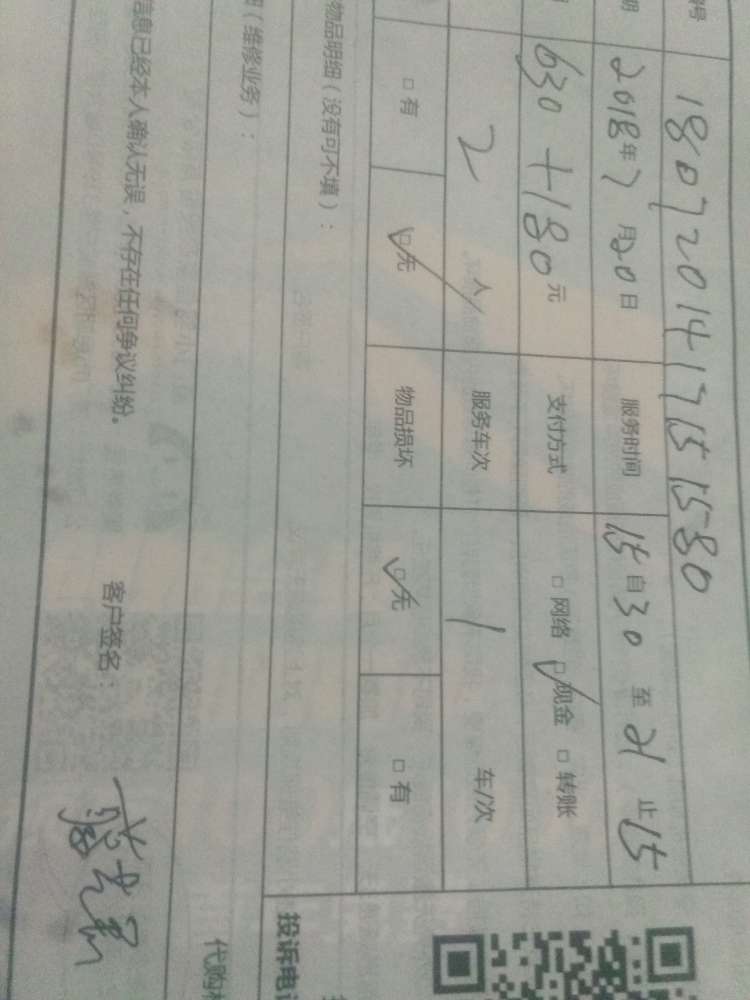 号 1807201417151580
期 2018年7月20日 服务时间 15自30至21止15
630+180元 支付方式 □网络 ☑现金 □转账
2人 服务车次 1 车/次
□有 ☑无 物品损坏 ☑无 □有
物品明细（没有可不填）：
（维修业务）：
信息已经本人确认无误，不存在任何争议纠纷。 客户签名：
投诉电
代购